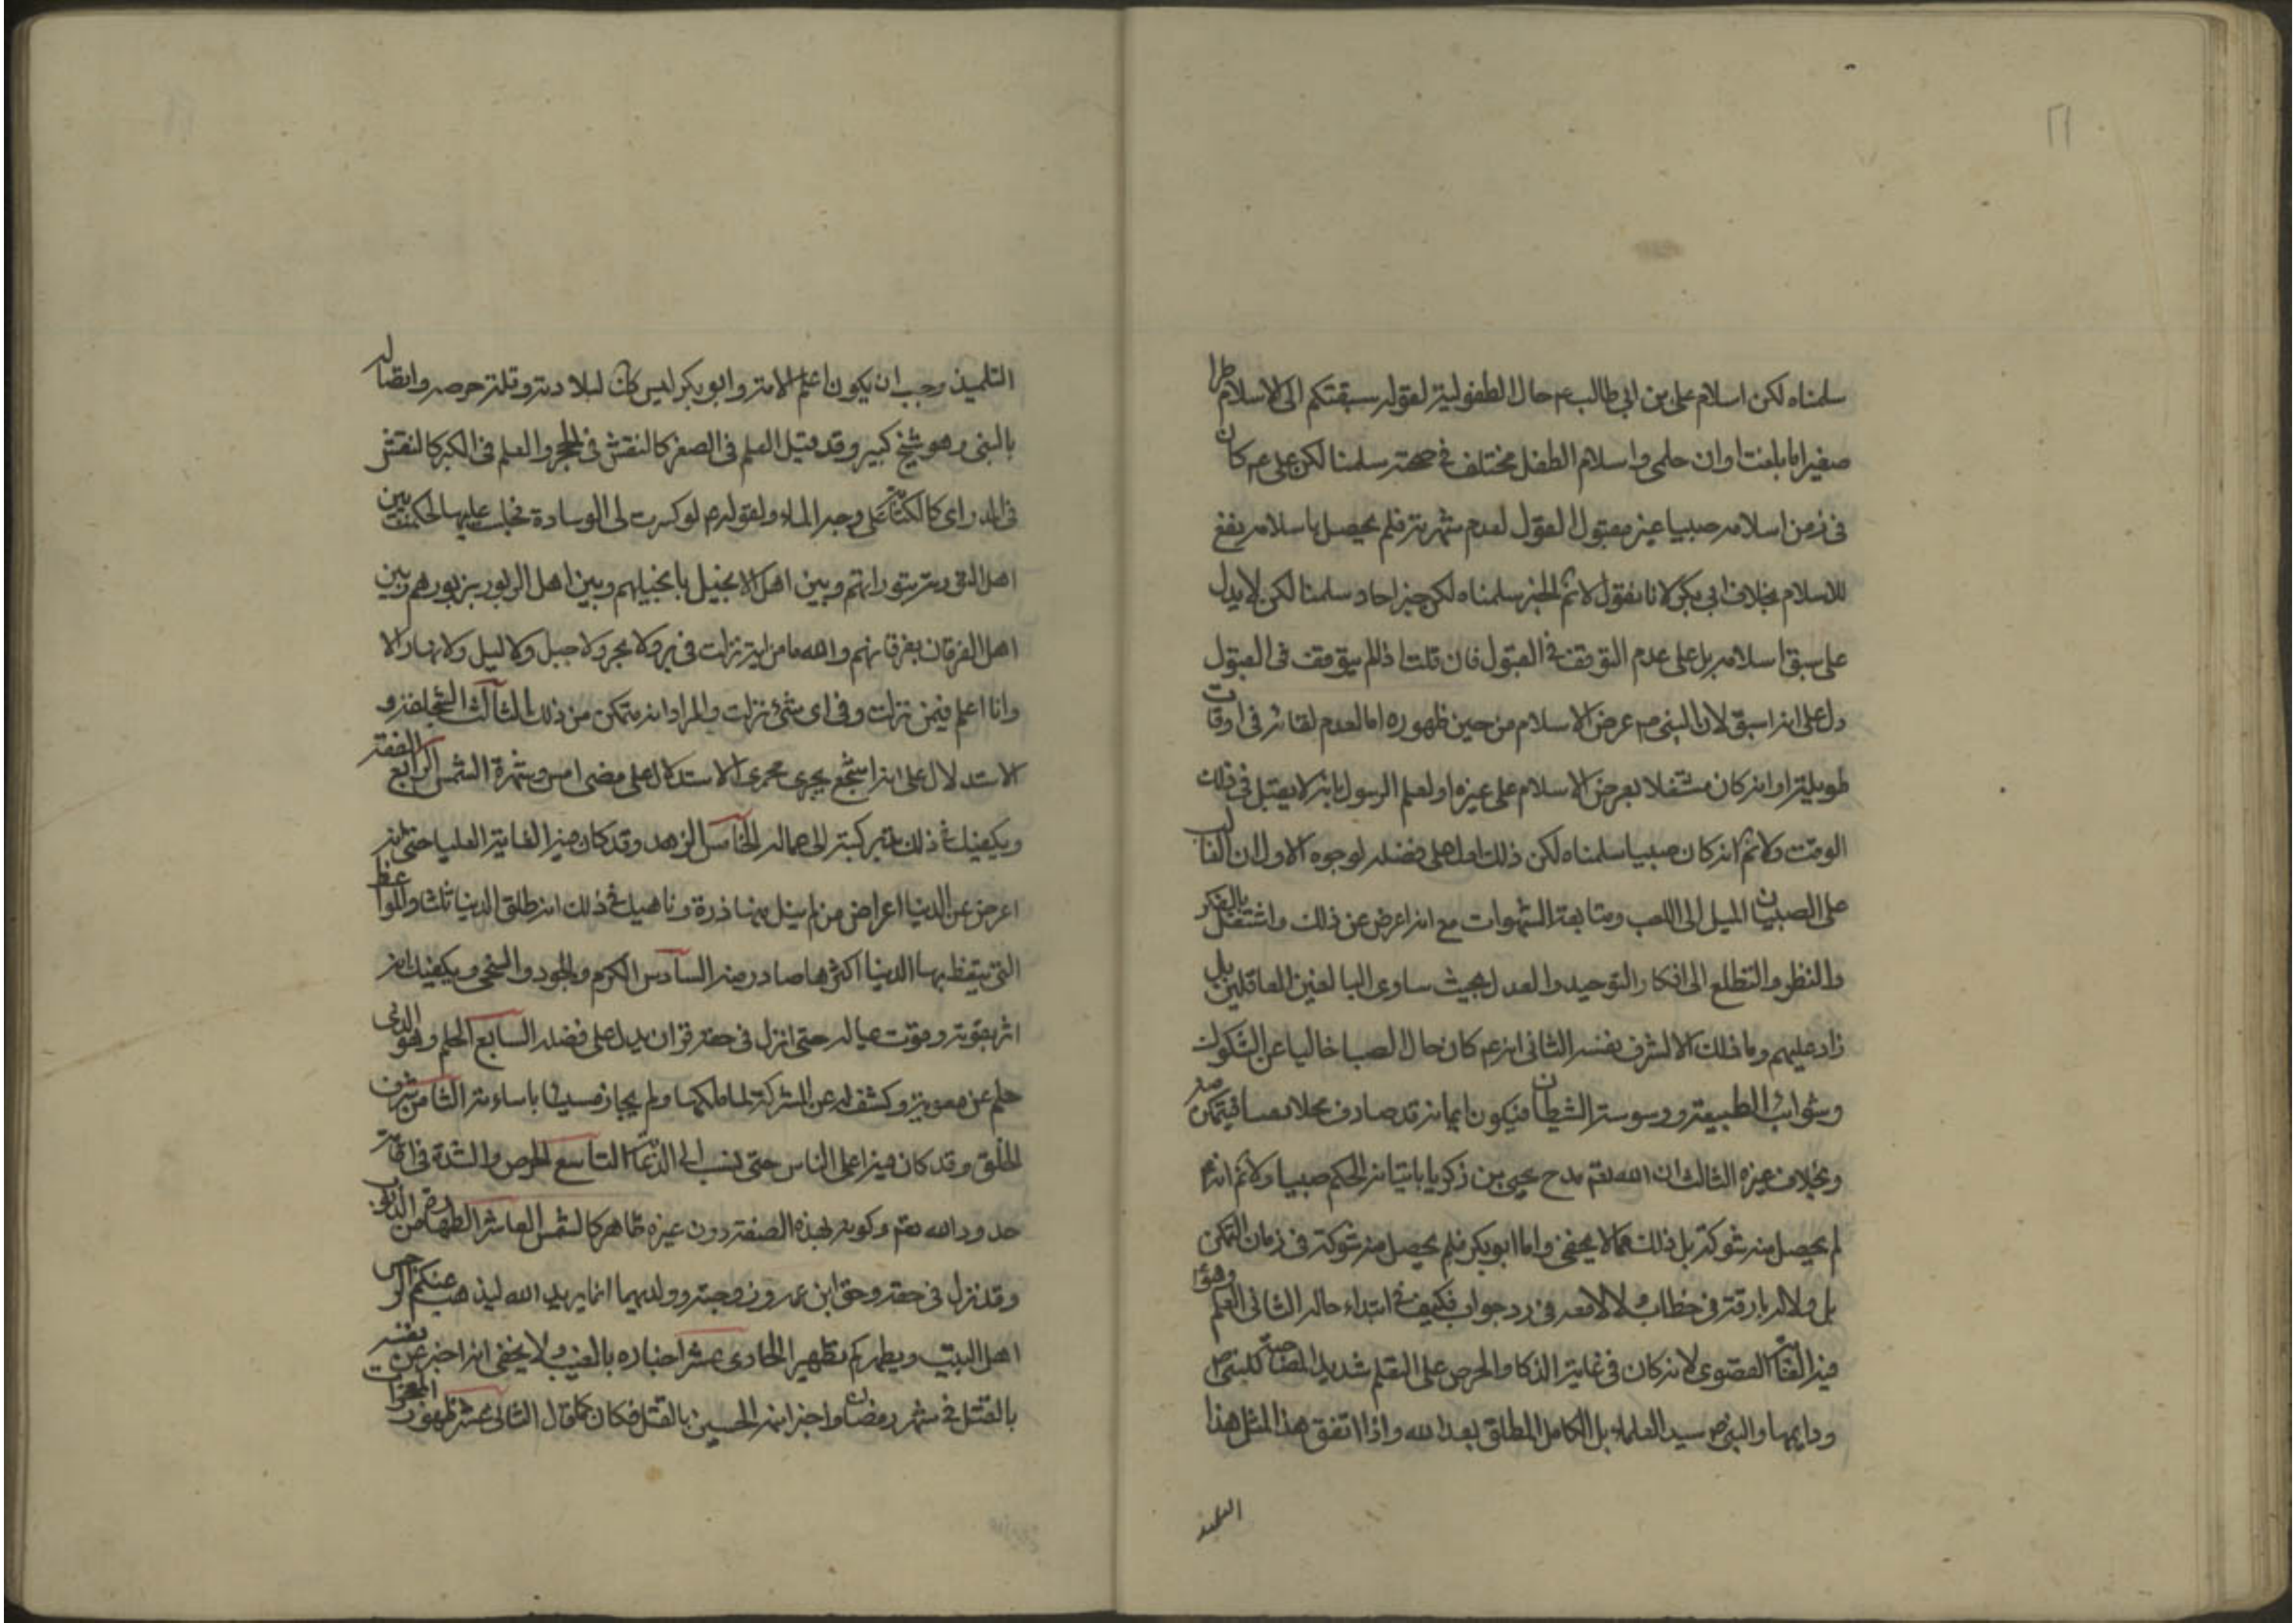 سلمناه لكن اسلام على بن ابى طالب ع حال الطفولية لقوله سبقتكم الى الاسلام طرا
صغيرا ما بلغت اوان حلمى واسلام الطفل مختلف فى صحته سلمنا لكن على ع كان
فى زمن اسلامه صبيا غير مقبول القول لعدم شهرته فلم يحصل باسلامه نفع
للاسلام بخلاف ابى بكر لانا نقول لا نم الخبر سلمناه لكن خبر احاد سلمنا لكن لا يدل
على سبق اسلامه بل على عدم التوقف فى القبول فان قلت اذا لم يتوقف فى القبول
دل على انه اسبق لان النبى ص عرض الاسلام من حين ظهوره اما لعدم لقائه فى اوقات
طويلة او انه كان مشتغلا بعرض الاسلام على غيره او لعلم الرسول بانه لا يقبل فى ذلك
الوقت ولا نم انه كان صبيا سلمناه لكن ذلك ادل على فضله لوجوه الاول ان الغالب
على الصبيان الميل الى اللعب ومتابعة الشهوات مع انه اعرض عن ذلك واشتغل بالفكر
والنظر والتطلع الى افكار التوحيد والعدل بحيث ساوى البالغين العاقلين بل
زاد عليهم وما ذلك الا لشرف نفسه الثانى انه ع كان حال الصبا خاليا عن الشكوك
وشوائب الطبيعة ووسوسة الشيطان فيكون ايمانه قد صادف محلا فيتمكن منه
وبخلاف غيره الثالث ان الله تعم مدح يحيى بن زكريا باتيانه الحكم صبيا ولا نم انه ع
لم يحصل منه شوكة بل ذلك مما لا يخفى واما ابو بكر فلم يحصل منه شوكة فى زمان التمكن
بل ولا له بارقة فى خطاب ولا لامعه فى رد جواب فكيف فى ابتداء حاله الثانى العلم وهو
فيه الغاية القصوى لانه كان فى غاية الذكا والحرص على التعلم شديد المصاحبة للنبى ص
ودايمها والنبى ص سيد العلماء بل الكامل المطلق بعد الله واذا اتفق هذا لمثل هذا
التلميذ
التلميذ وجب ان يكون اعلم الامة وابو بكر ليس كك لبلادته وقلة حرصه واتصاله
بالنبى وهو شيخ كبير وقد قيل العلم فى الصغر كالنقش فى الحجر والعلم فى الكبر كالنقش
فى المدر اى كالكتابة على وجه الماء ولقوله ع لو كسرت لى الوسادة فجلست عليها لحكمت بين
اهل التورية بتوراتهم وبين اهل الانجيل بانجيلهم وبين اهل الزبور بزبورهم وبين
اهل الفرقان بفرقانهم والله ما من اية نزلت فى بر ولا بحر ولا جبل ولا ليل ولا نهار الا
وانا اعلم فيمن نزلت وفى اى شئ نزلت والمراد انه متمكن من ذلك الثالث الشجاعة و
الاستدلال على انه اشجع يجرى مجرى الاستدلال على مضى امس وشهرة الشمس الرابع العفة
ويكفيك فى ذلك الى عماله الخامس الزهد وقد كان فيه الغاية العليا حتى انه
اعرض عن الدنيا اعراض من لم ينل منها ذرة وناهيك فى ذلك انه طلق الدنيا ثلثا والمواعظ
التى يتيقظ بها الدنيا اكثرها صادر منه السادس الكرم والجود والسخى ويكفيك انه
اثر بقوته وقوت عياله حتى انزل فى حقه قران يدل على فضله السابع الحلم وهو الذى
حلم عن معوية وكشف له عن المشركة لما ملكها ولم يجاز مسيئا باساءته الثامن شرف
الخلق وقد كان فيه اعلى الناس حتى نسب الى الدعابة التاسع الحرص والشدة فى اقامة
حدود الله تعم وكونه بهذه الصفة دون غيره ظاهر كالشمس العاشر الطهارة من الذنوب
وقد نزل فى حقه وحق ابن عمه وزوجته وولديهما انما يريد الله ليذهب عنكم الرجس
اهل البيت ويطهركم تطهيرا الحادى عشر اخباره بالغيب ولا يخفى انه اخبر عن نفسه
بالقتل فى شهر رمضان واخبر ابنه الحسين بالقتل فكان كما قال الثانى عشر ظهور المعجزات